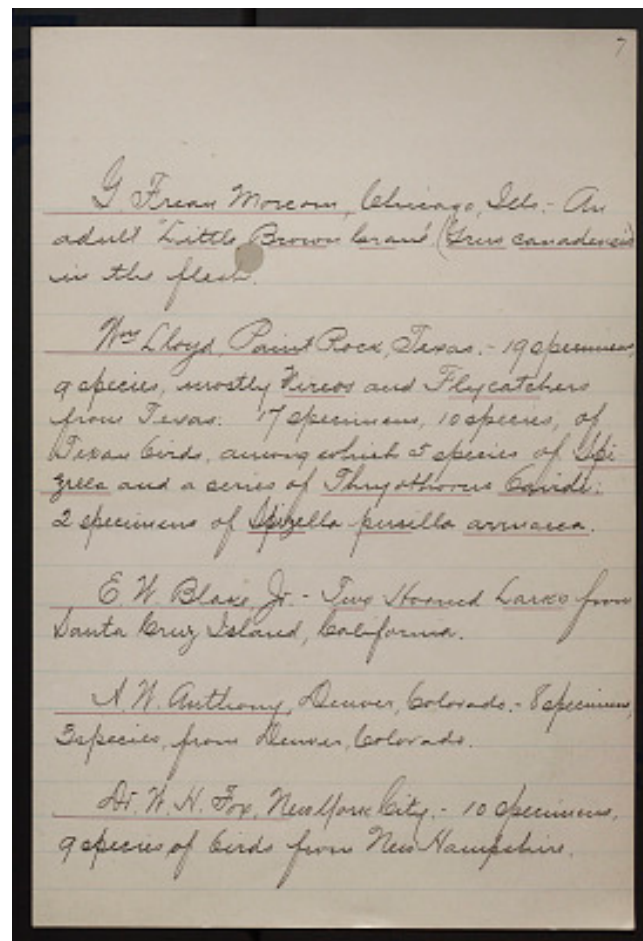 7
G. Frean Morcom, Chicago, Ills. - An
adult "Little Brown Crane" (Grus canadensis)
in the flesh.
Wm Lloyd, Paint Rock, Texas. - 19 specimens,
9 species, mostly Vireos and Flycatchers
from Texas: 17 specimens, 10 species, of
Texan birds, among which 5 species of Spi
zella and a series of Thryothorus
2 specimens of Spizella pusilla arenacea.
E. W. Blake, Jr. - Two Horned Larks from
Santa Cruz Island, California.
A. W. Anthony, Denver, Colorado. - 8 specimens,
3 species, from Denver, Colorado.
Dr. W. H. Fox, New York City. - 10 specimens,
9 species, of birds from New Hampshire.